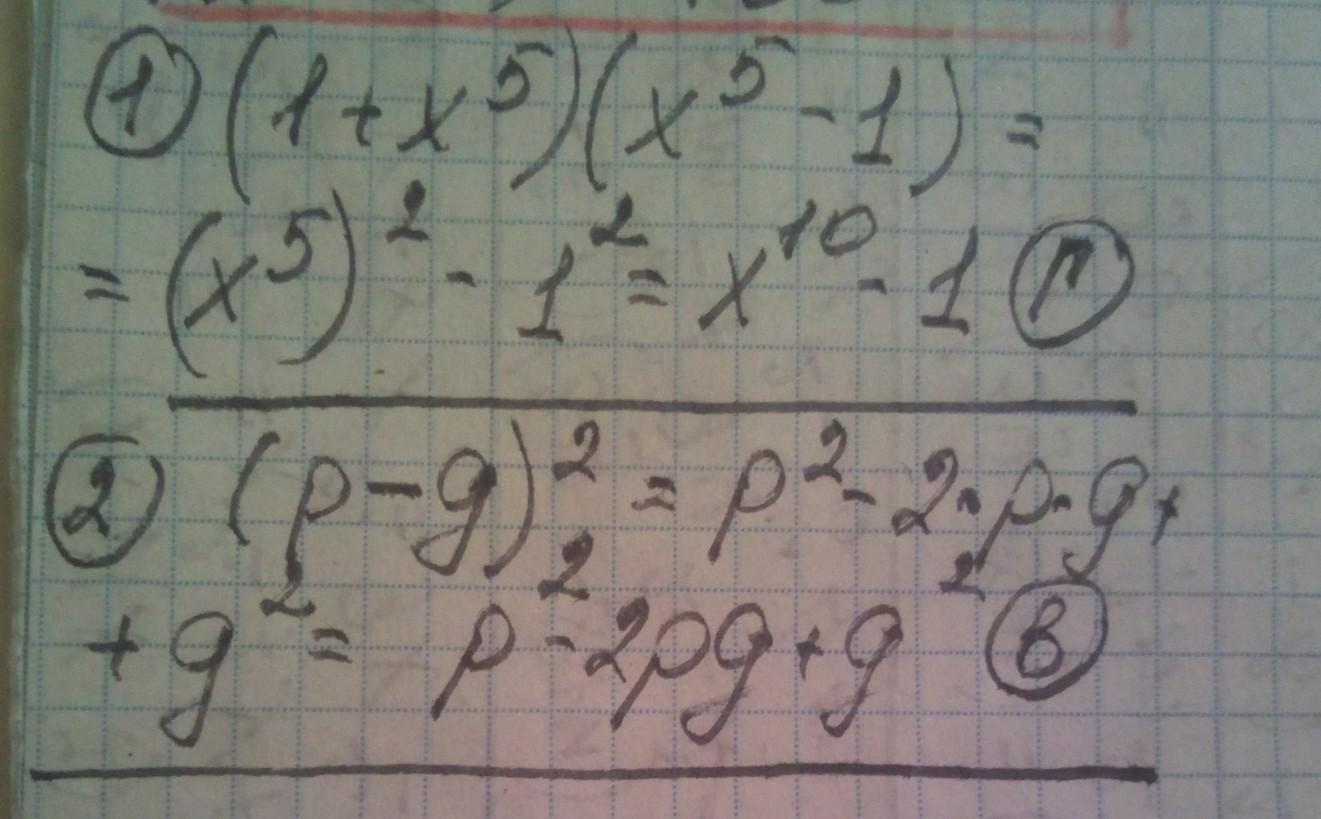 ① (1+x⁵)(x⁵-1) =
= (x⁵)² - 1² = x¹⁰ - 1 Ⓖ
② (p-g)² = p² - 2·p·g+
+ g² = p² - 2pg + g² Ⓑ